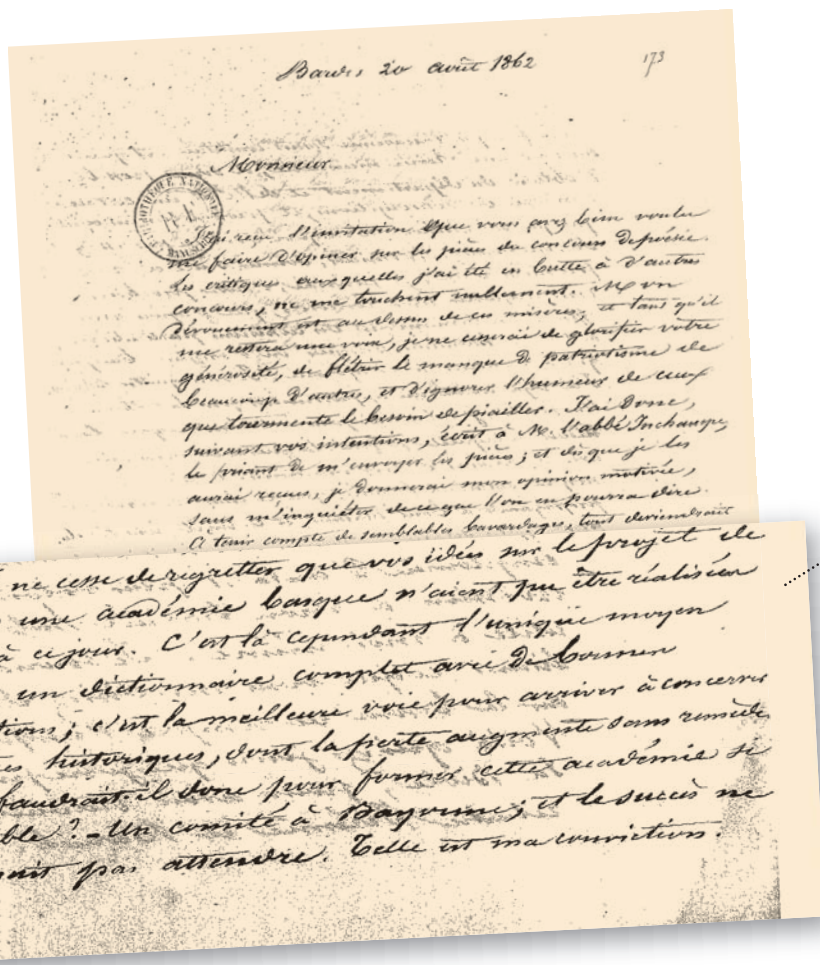 Bardos 20 août 1862
173
Monsieur
BIBLIOTHEQUE NATIONALE
MANUSCRITS
J'ai reçu l'invitation que vous avez bien voulu
me faire d'opiner sur les pièces du concours de poésie.
Les critiques auxquelles j'ai été en butte à d'autres
concours, ne me touchent nullement. Mon
dévouement est au dessus de ces misères; et tant qu'il
me restera une voix, je ne cesserai de glorifier votre
générosité, de flétrir le manque de patriotisme de
beaucoup d'autres, et d'ignorer l'humeur de ceux
que tourmente le besoin de piailler. J'ai donc,
suivant vos intentions, écrit à M. l'abbé Inchauspe,
le priant de m'envoyer les pièces; et dès que je les
aurai reçues, je donnerai mon opinion motivée,
sans m'inquiéter de ce que l'on en pourra dire.
A tenir compte de semblables bavardages, tout deviendrait
ne cesse de regretter que vos idées sur le projet de
une académie basque n'aient pu être réalisées
à ce jour. C'est là cependant l'unique moyen
un dictionnaire complet avec de bonnes
tions; c'est la meilleure voie pour arriver à conserver
es historiques, dont la perte augmente sans remède
faudrait-il donc pour former cette académie si
ble? - Un comité à Bayonne; et le succès ne
rait pas attendre. Telle est ma conviction.